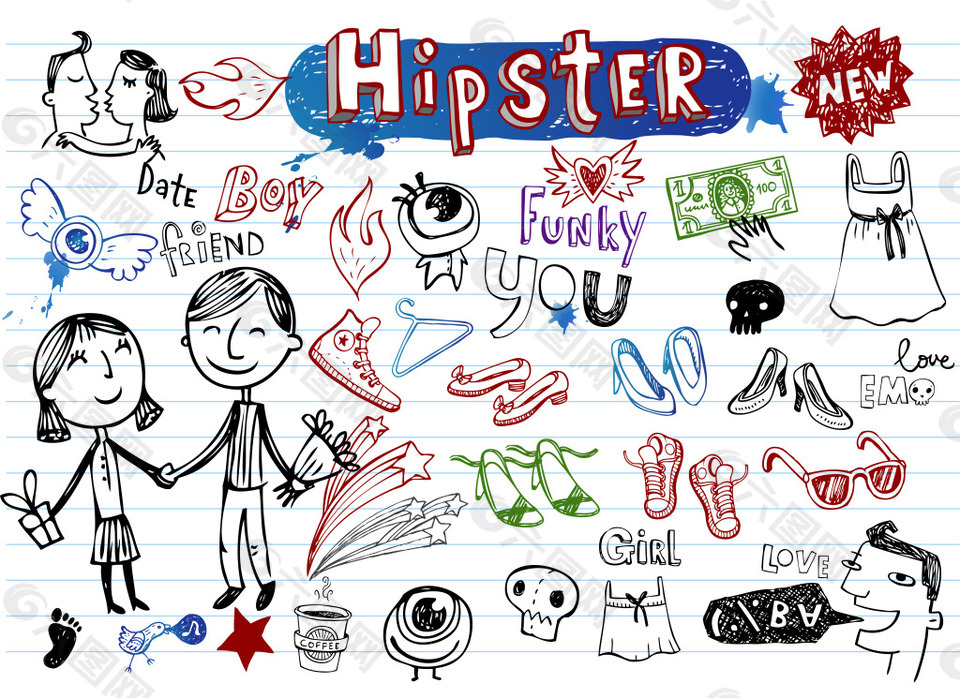 HiPSTER
NEW
DATE
BOY
FRiEND
FUNKY
YOU
1
100
1
love
EMO
GiRL
LOVE
COFFEE